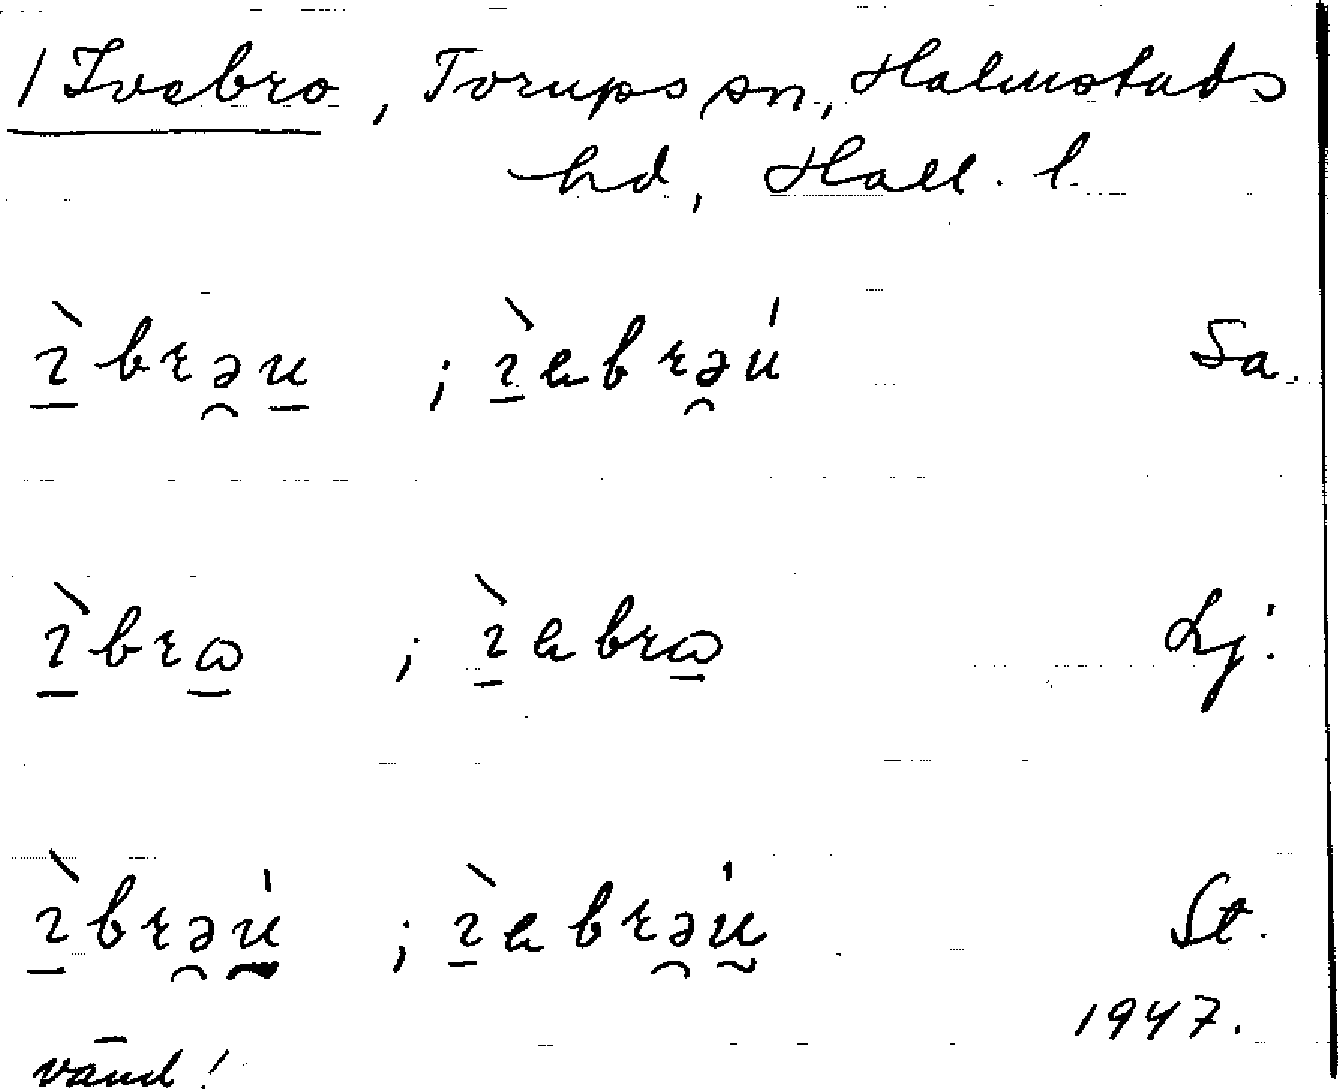 1 Ivebro, Torups sn, Halmstads
hd, Hall. l.
ı̀brəu ; ı̀ebrəú Sa.
ı̀brɷ ; ı̀ebrɷ Lj.
ı̀brəú ; ı̀ebrəú St.
1947.
vänd!